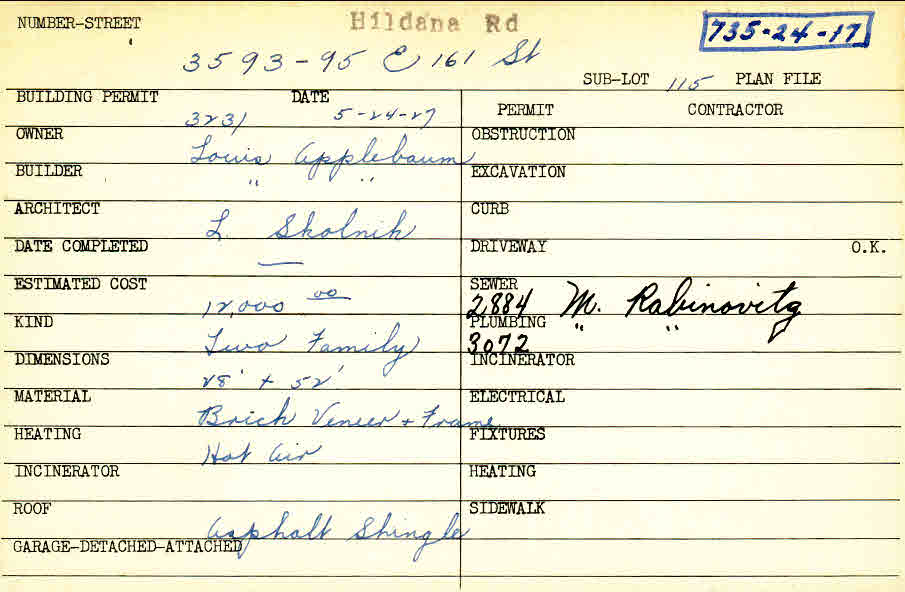 NUMBER-STREET Hildana Rd 735-24-17
3593-95 E 161 St
SUB-LOT 115 PLAN FILE
BUILDING PERMIT 3231 DATE 5-24-27
PERMIT CONTRACTOR
OWNER Louis Applebaum
OBSTRUCTION
BUILDER " "
EXCAVATION
ARCHITECT L. Skolnik
CURB
DATE COMPLETED —
DRIVEWAY O.K.
ESTIMATED COST 12,000 00
SEWER 2884 M. Rabinovitz
KIND Two Family
PLUMBING 3072 " "
DIMENSIONS 28' + 52'
INCINERATOR
MATERIAL Brick Veneer + Frame
ELECTRICAL
HEATING Hot Air
FIXTURES
INCINERATOR
HEATING
ROOF Asphalt Shingle
SIDEWALK
GARAGE-DETACHED-ATTACHED